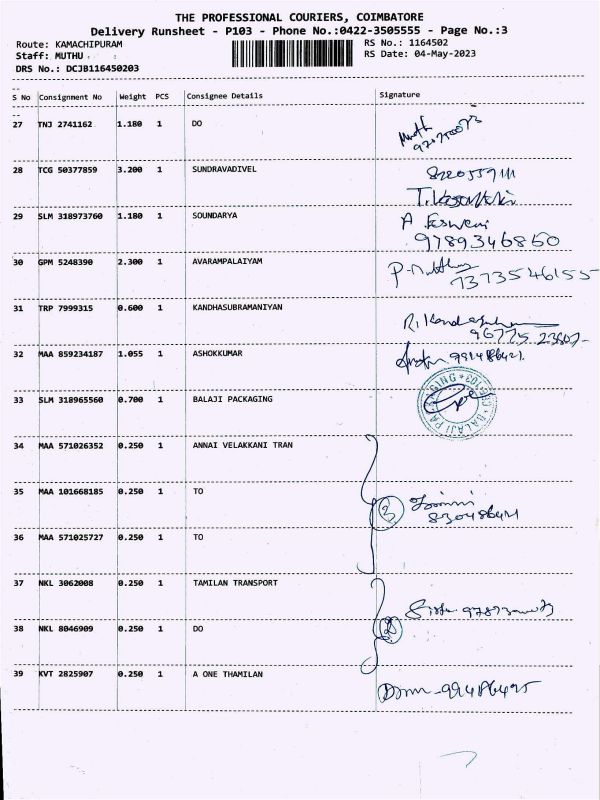 THE PROFESSIONAL COURIERS, COIMBATORE
Delivery Runsheet - P103 - Phone No.:0422-3505555 - Page No.:3
Route: KAMACHIPURAM RS No.: 1164502
Staff: MUTHU . RS Date: 04-May-2023
DRS No.: DCJB116450203
S No Consignment No Weight PCS Consignee Details Signature
27 TNJ 2741162 1.180 1 DO
28 TCG 50377859 3.200 1 SUNDRAVADIVEL
29 SLM 318973760 1.180 1 SOUNDARYA
9789346860
30 GPM 5248390 2.300 1 AVARAMPALAIYAM
7373546155
31 TRP 7999315 0.600 1 KANDHASUBRAMANIYAN
32 MAA 859234187 1.055 1 ASHOKKUMAR
33 SLM 318965560 0.700 1 BALAJI PACKAGING
BALAJI PACKAGING
34 MAA 571026352 0.250 1 ANNAI VELAKKANI TRAN
35 MAA 101668185 0.250 1 TO
3
36 MAA 571025727 0.250 1 TO
37 NKL 3062008 0.250 1 TAMILAN TRANSPORT
38 NKL 8046909 0.250 1 DO
2
39 KVT 2825907 0.250 1 A ONE THAMILAN